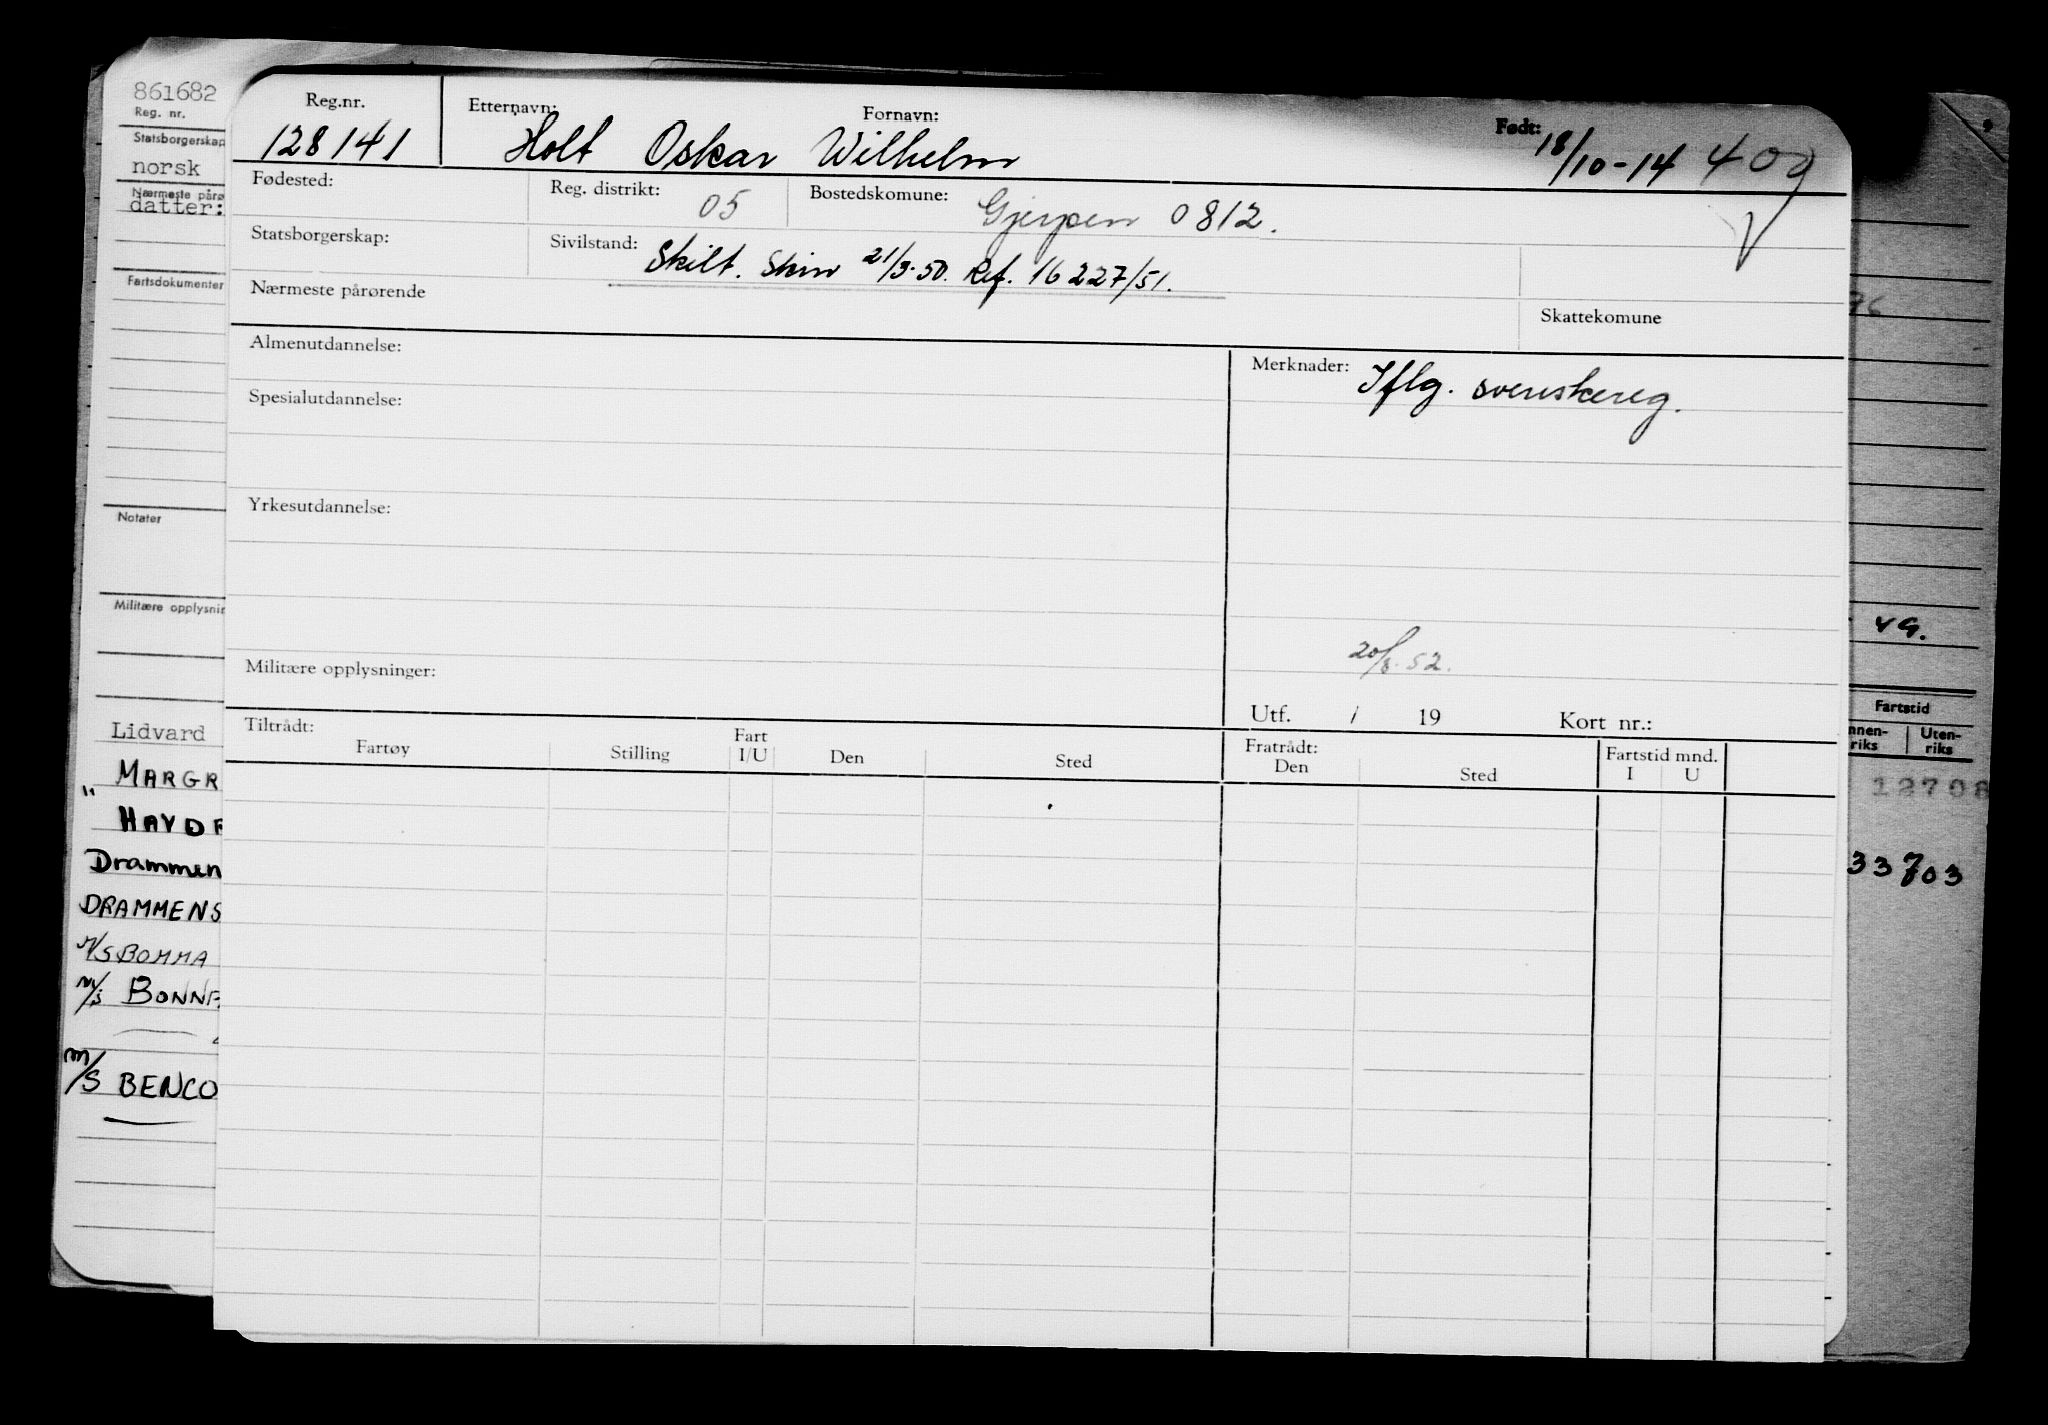 861682
Reg. nr.
Statsborgerskap
norsk
Nærmeste pårø
datter:
Fartsdokumenter
Notater
Militære opplysnin
Lidvard
MARGR
" HAVDR
Drammen
DRAMMENS
M/S BOMMA
M/S BONNE
M/S BENCO
Reg.nr. Etternavn: Fornavn: Født:
128141 Holt Oskar Wilhelm 18/10-14 409
Fødested: Reg. distrikt: 05 Bostedskomune: Gjerpen 0812.
Statsborgerskap: Sivilstand: Skilt. Skien 21/3.50. Ref. 16227/51.
Nærmeste pårørende Skattekomune
Almenutdannelse: Merknader: Iflg. svenskereg.
Spesialutdannelse:
Yrkesutdannelse:
20/8.52.
Militære opplysninger:
Utf. / 19 Kort nr.:
Tiltrådt: Fratrådt:
Fartøy Stilling Fart I/U Den Sted Den Sted Fartstid mnd. I U
76
49.
Fartstid
nnen-
riks
Uten-
riks
12708
33703